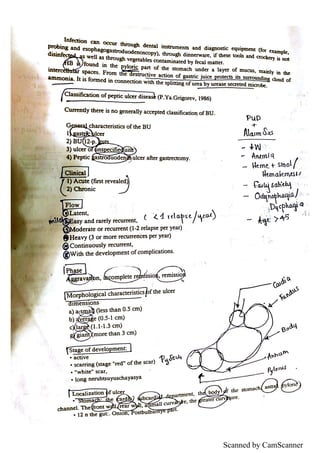 Infection can occur through dental instruments and diagnostic equipment (for example,
probing and esophagogastroduodenoscopy), through dinnerware, if these tools and crockery is not
disinfected, as well as through vegetables contaminated by fecal matter.
HB is found in the pyloric part of the stomach under a layer of mucus, mainly in the
intercellular spaces. From the destructive action of gastric juice protects its surrounding cloud of
ammonia. It is formed in connection with the splitting of urea by urease secreted microbe.
Classification of peptic ulcer disease (P.Ya.Grigorev, 1986)
Currently there is no generally accepted classification of BU.
General characteristics of the BU
1) gastric ulcer
2) BU 12-p. guts
3) ulcer of unspecified
4) Peptic gastroduodenal ulcer after gastrectomy.
PUD
+
Alarm Sxs
- ↓W
- Anemia
- Heme + stool /
Hematemesis
- Early satiety
- Odynophagia /
Dysphagia
- Age > 45
Clinical
1) Acute (first revealed)
2) Chronic
Flow
Latent,
Easy and rarely recurrent, ( < 1 relapse / year)
Moderate or recurrent (1-2 relapse per year)
Heavy (3 or more recurrences per year)
Continuously recurrent,
With the development of complications.
Phase
Aggravation, incomplete remission, remission
Morphological characteristics of the ulcer
dimensions
a) a small (less than 0.5 cm)
b) average (0.5-1 cm)
c) large (1.1-1.3 cm)
g) giant (more than 3 cm)
Cardia
Fundus
Body
Antrum
Pylorus
Stage of development:
• active
• scarring (stage "red" of the scar)
• "white" scar,
• long nerubtsuyuschayasya
Localization of ulcer
• Stomach: the cardia, subcardial department, the body of the stomach, antral, pyloric
channel. The front wall, rear wall, a small curvature, the greater curvature.
• 12 n the gut: Onion, Postbulbarnyy part.
Scanned by CamScanner